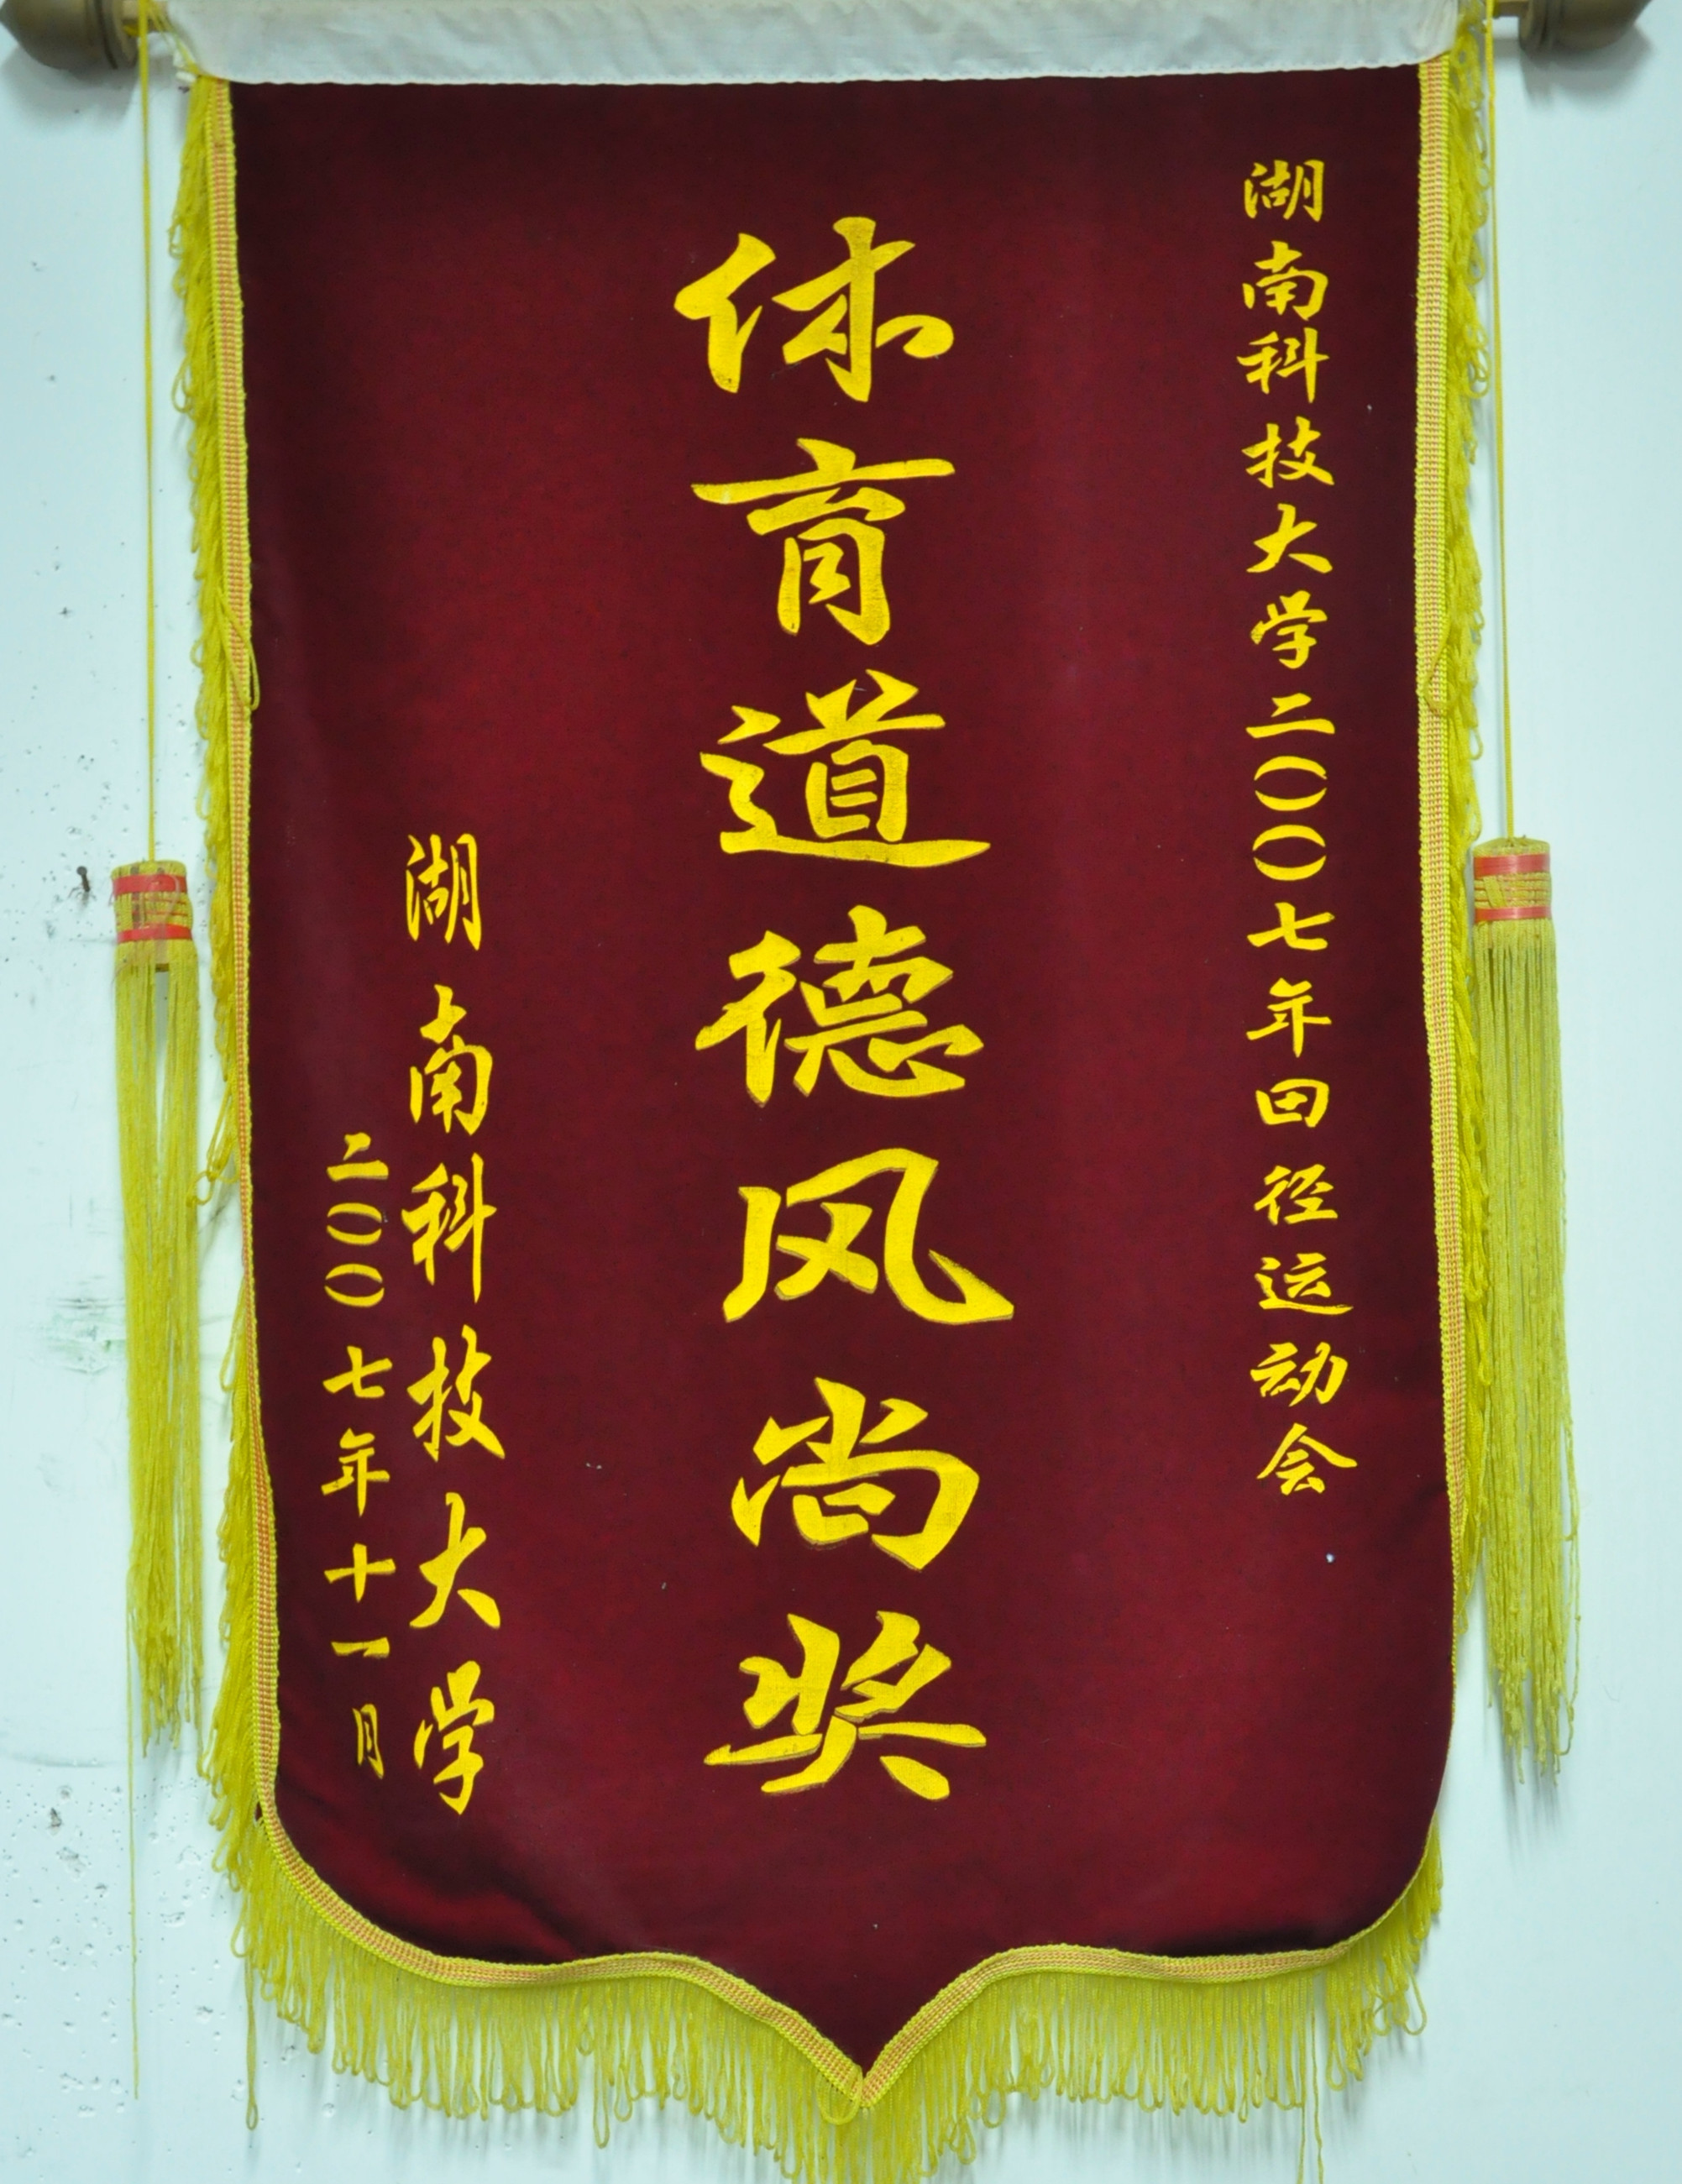 湖南科技大学二〇〇七年田径运动会
体育道德风尚奖
湖南科技大学
二〇〇七年十一月